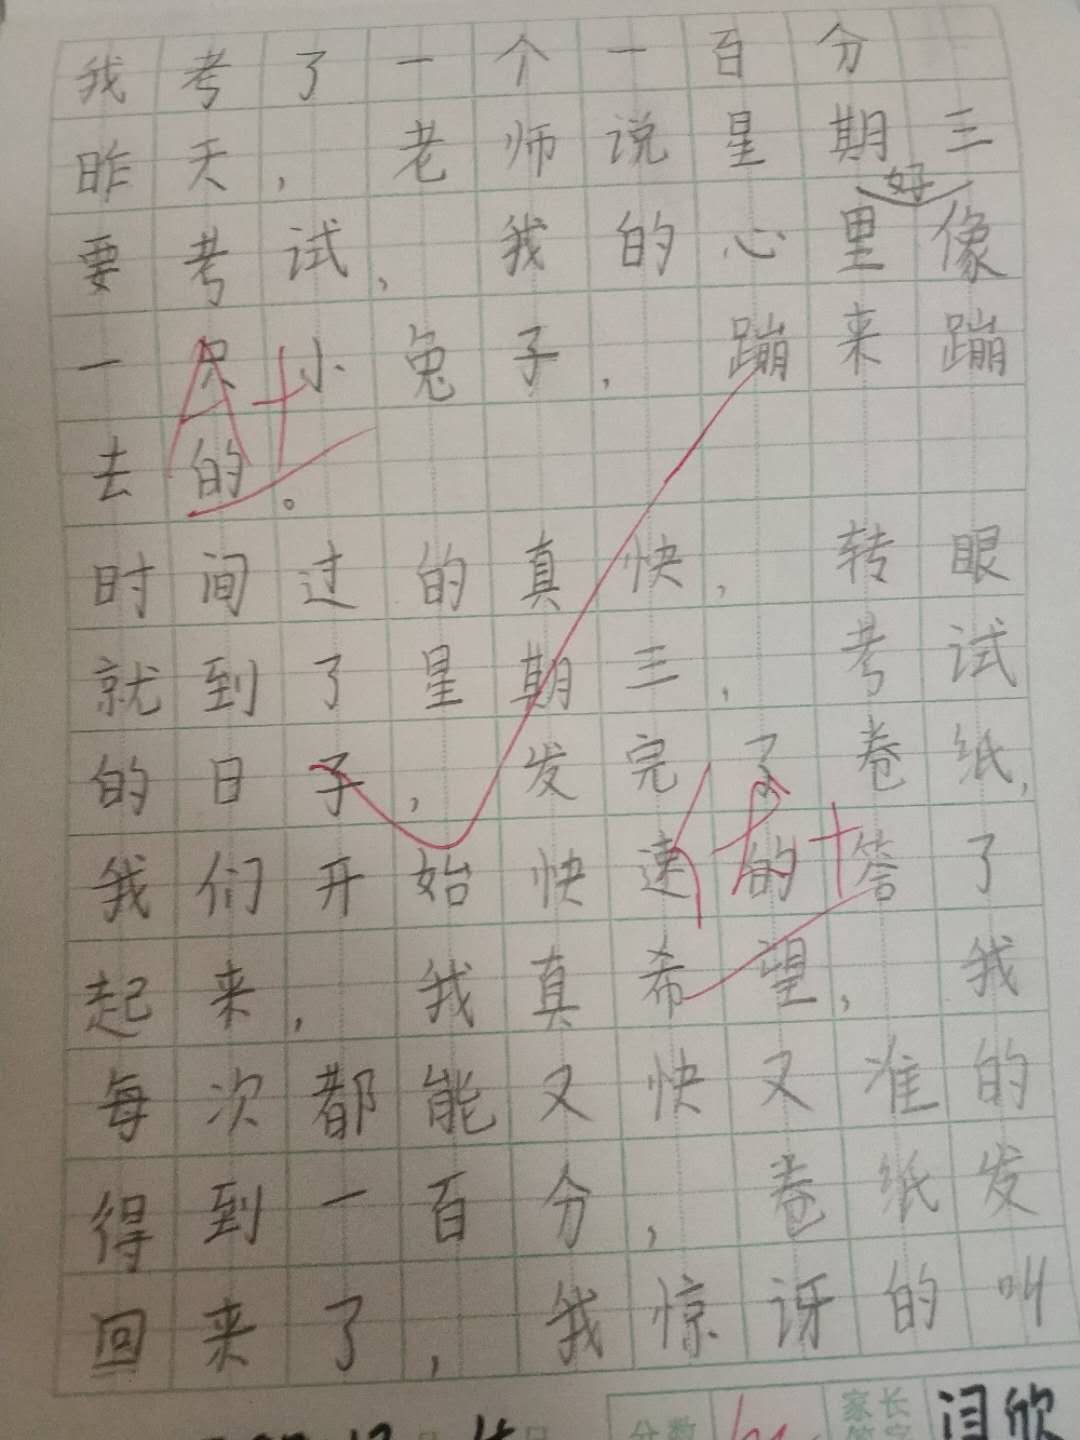 我考了一个一百分
昨天，老师说星期三
好
要考试，我的心里像
一只小兔子，蹦来蹦
去的。
时间过的真快，转眼
就到了星期三，考试
的日子，发完了卷纸，
我们开始快速的答了
起来，我真希望，我
每次都能又快又准的
得到一百分，卷纸发
回来了，我惊讶的叫
分数
家长